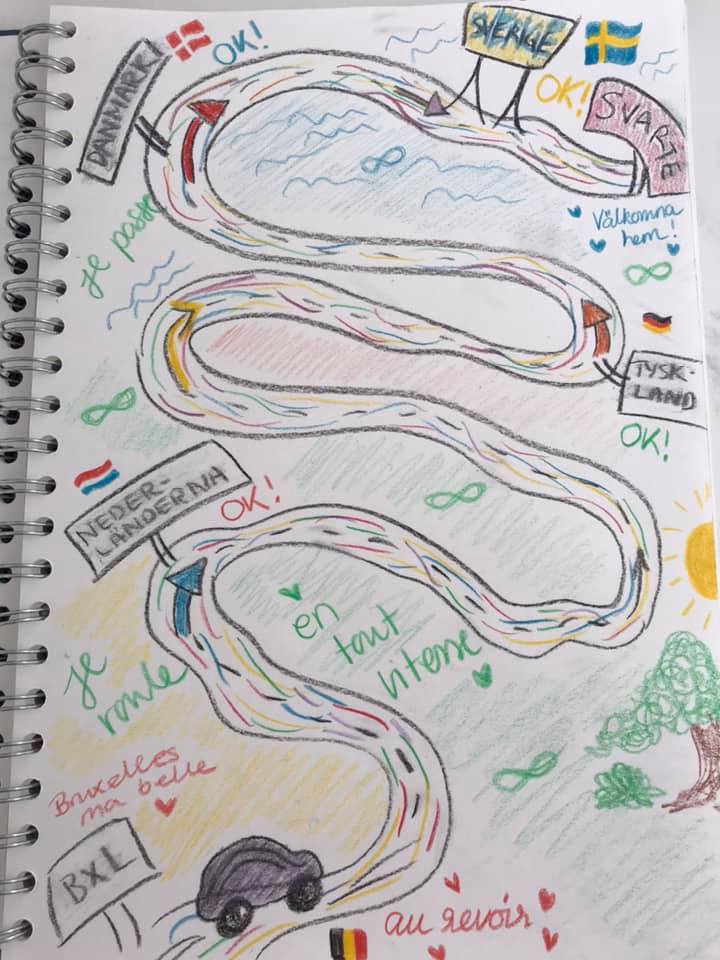 SVERIGE
DANMARK!
OK!
OK!
SVARTE
Välkomna
hem!
Je passe
TYSK-
LAND
OK!
NEDER-
LÄNDERNA
OK!
en
tout
vitesse
je
roule
Bruxelles
ma belle
BXL
au revoir